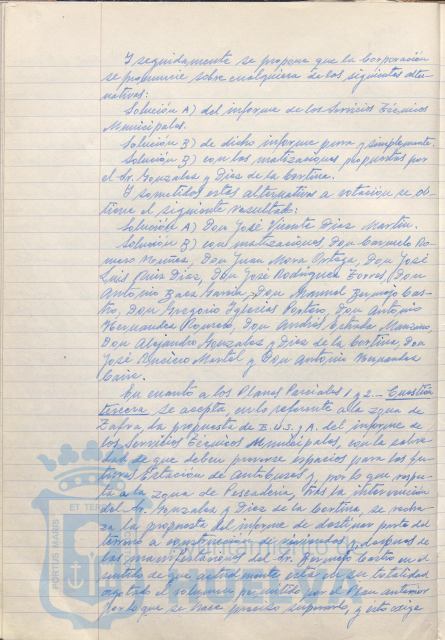 Y seguidamente se propone que la Corporación
se pronuncie sobre cualquiera de las siguientes alter-
nativas:
Solución A) del informe de los Servicios Técnicos
Municipales.
Solución B) de dicho informe pura y simplemente.
Solución B) con las matizaciones propuestas por
el Sr. Gonzalez y Diez de la Cortina.
Y sometidas estas alternativas a votación se ob-
tiene el siguiente resultado:
Solución A) Don José Vicente Diaz Martín.
Solución B) con matizaciones, Don Carmelo Ro-
mero Nuñez, Don Juan Mora Ortega, Don José
Luis Ruiz Diaz, Don José Rodriguez Torres, Don
Antonio Baez Garcia, Don Manuel Bermejo Cas-
tro, Don Gregorio Iglesias Portero, Don Antonio
Hernandez Romero, Don Andrés Estrada Manzano,
Don Alejandro Gonzalez y Diez de la Cortina, Don
José Martel y Don Antonio Fernandez
En cuanto a los Planes Parciales 1 y 2... Cuestión
tercera, se acepta, en lo referente a la zona de
Zafra, la propuesta de E.U.S. y A. del informe de
los Servicios Técnicos Municipales, con la salve-
dad de que deben preverse espacios para las fu-
turas Estación de Autobuses y, por lo que respec-
ta a la zona de Pescadería, tras la intervención
del Sr. Gonzalez y Diez de la Cortina, se recha-
za la propuesta del informe de destinar parte del
terreno a construcción de viviendas y despues de
las manifestaciones del Sr. Bermejo Castro en el
sentido de que actualmente está en su totalidad
agotado el volumen permitido por el Plan anterior
por lo que se hace preciso suprimirlo, y esto exige
PORTUS MARIS ET TERRAE